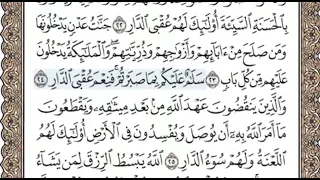 بِالْحَسَنَةِ السَّيِّئَةَ أُولَٰئِكَ لَهُمْ عُقْبَى الدَّارِ ۝٢٢ جَنَّٰتُ عَدْنٍ يَدْخُلُونَهَا
وَمَن صَلَحَ مِنْ ءَابَآئِهِمْ وَأَزْوَٰجِهِمْ وَذُرِّيَّٰتِهِمْ وَالْمَلَٰٓئِكَةُ يَدْخُلُونَ
عَلَيْهِم مِّن كُلِّ بَابٍ ۝٢٣ سَلَٰمٌ عَلَيْكُم بِمَا صَبَرْتُمْ فَنِعْمَ عُقْبَى الدَّارِ ۝٢٤
وَالَّذِينَ يَنقُضُونَ عَهْدَ اللَّهِ مِن بَعْدِ مِيثَٰقِهِ وَيَقْطَعُونَ
مَآ أَمَرَ اللَّهُ بِهِ أَن يُوصَلَ وَيُفْسِدُونَ فِي الْأَرْضِ أُولَٰئِكَ لَهُمُ
اللَّعْنَةُ وَلَهُمْ سُوٓءُ الدَّارِ ۝٢٥ اللَّهُ يَبْسُطُ الرِّزْقَ لِمَن يَشَآءُ